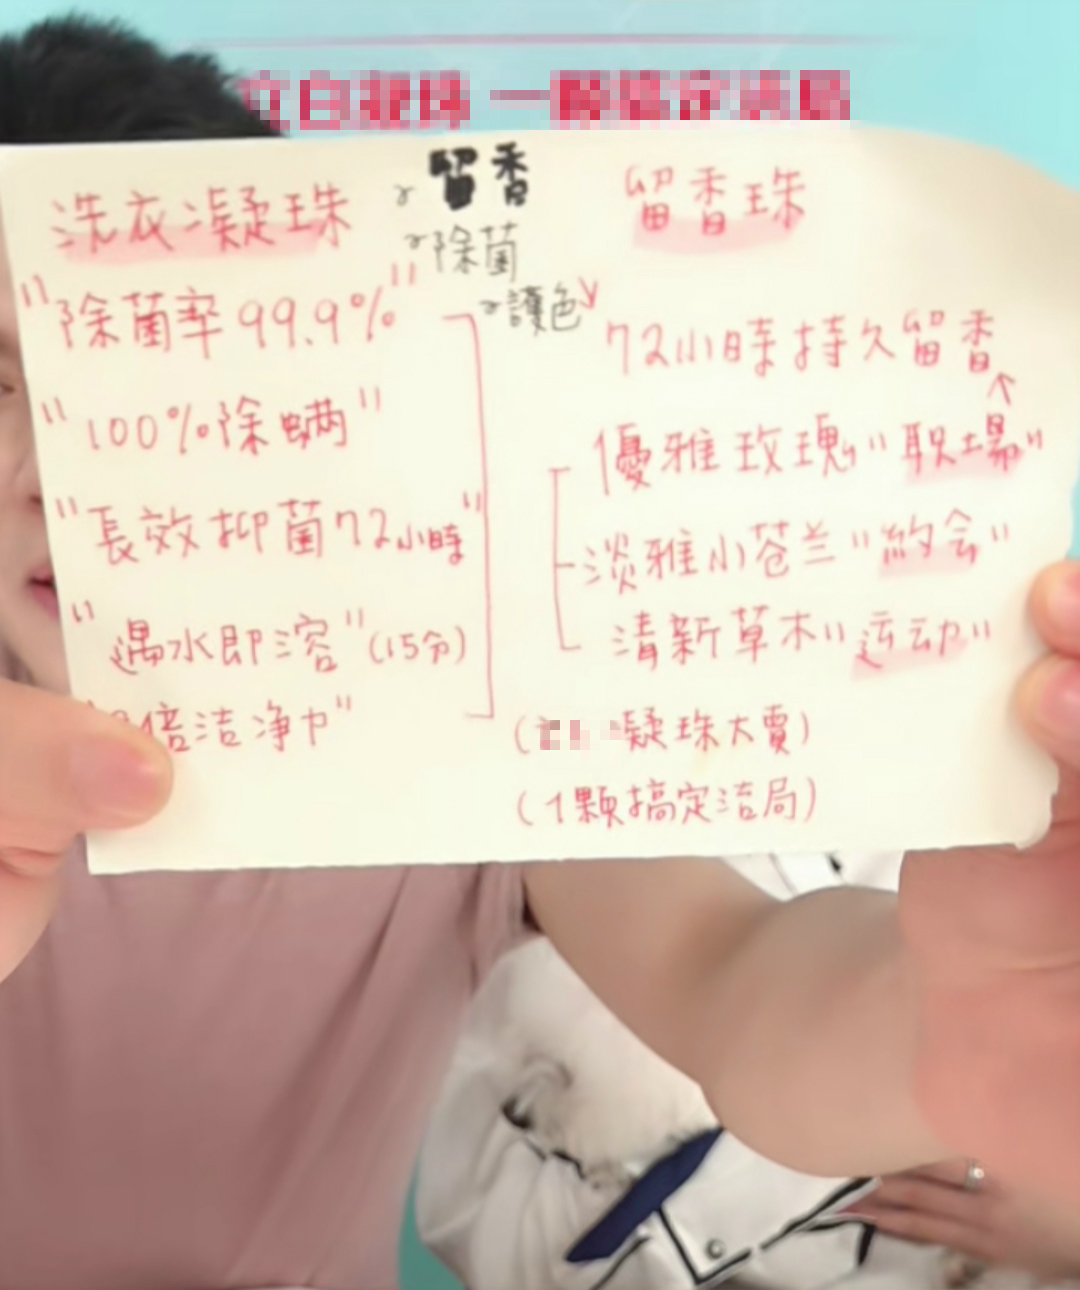 洗衣凝珠
留香
除菌
護色
"除菌率99.9%"
"100%除螨"
"長效抑菌72小時"
"遇水即溶"(15分)
倍洁净力"
留香珠
72小時持久留香
優雅玫瑰"职場"
淡雅小苍兰"約会"
清新草木"运动"
凝珠大賣)
(1顆搞定洁局)